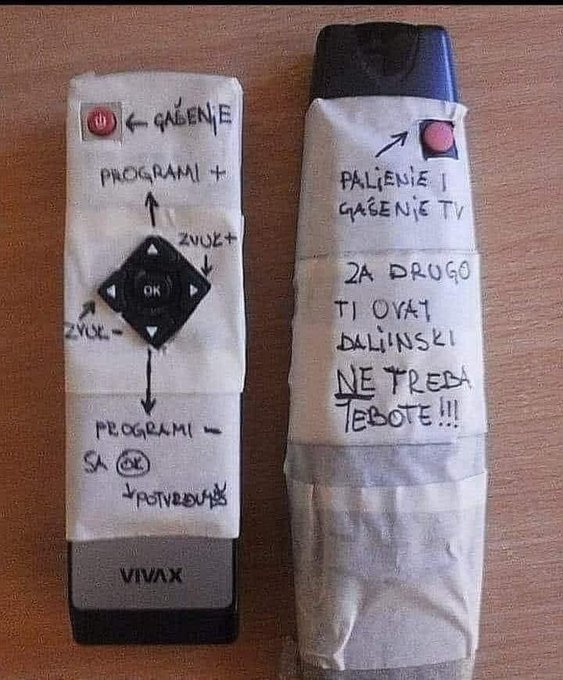 ← GAŠENJE
PROGRAMI +
ZVUK+
OK
ZVUK-
PROGRAMI -
SA OK
POTVRĐUJEŠ
VIVAX
PALJENJE I
GAŠENJE TV
ZA DRUGO
TI OVAJ
DALJINSKI
NE TREBA
JEBOTE!!!